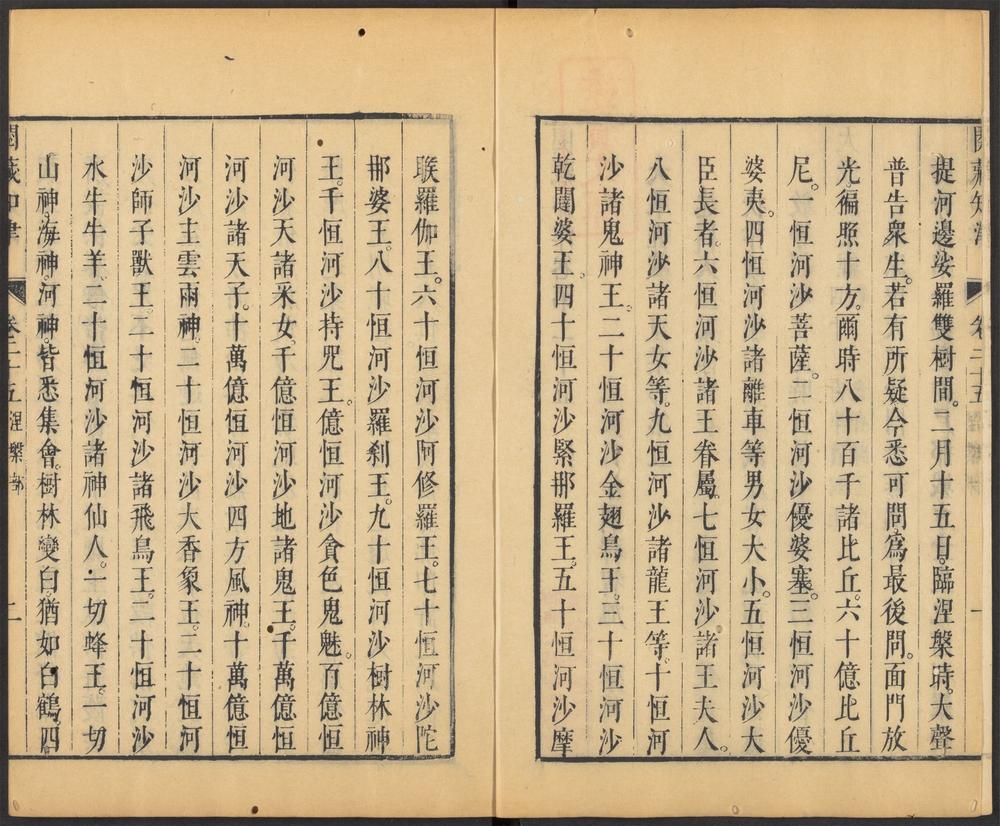 閱藏知津 卷二十五 涅槃部 一
提河邊娑羅雙樹間。二月十五日。臨涅槃時。大聲
普告衆生。若有所疑今悉可問。爲最後問。面門放
光。徧照十方。爾時八十百千諸比丘。六十億比丘
尼。一恒河沙菩薩。二恒河沙優婆塞。三恒河沙優
婆夷。四恒河沙諸離車等男女大小。五恒河沙大
臣長者。六恒河沙諸王眷屬。七恒河沙諸王夫人。
八恒河沙諸天女等。九恒河沙諸龍王等。十恒河
沙諸鬼神王。二十恒河沙金翅鳥王。三十恒河沙
乾闥婆王。四十恒河沙緊那羅王。五十恒河沙摩
睺羅伽王。六十恒河沙阿修羅王。七十恒河沙陀
那婆王。八十恒河沙羅刹王。九十恒河沙樹林神
王。千恒河沙持咒王。億恒河沙貪色鬼魅。百億恒
河沙天諸采女。千億恒河沙地諸鬼王。千萬億恒
河沙諸天子。十萬億恒河沙四方風神。十萬億恒
河沙主雲雨神。二十恒河沙大香象王。二十恒河
沙師子獸王。二十恒河沙諸飛鳥王。二十恒河沙
水牛牛羊。二十恒河沙諸神仙人。一切蜂王。一切
山神。海神。河神。皆悉集會。樹林變白。猶如白鶴。四
閱藏知津 卷二十五 涅槃部 二